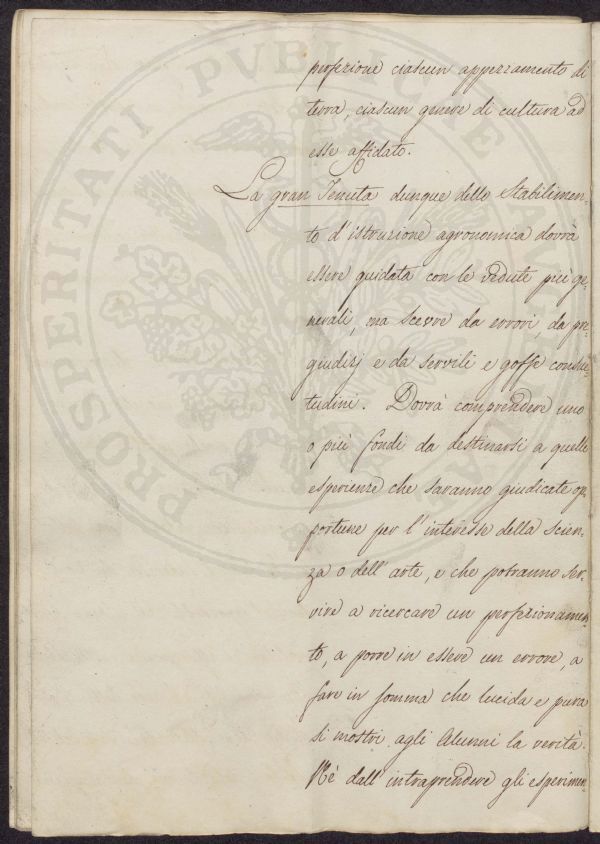 perfezione ciascun appezzamento di
terra, ciascun genere di cultura ad
esse affidato.
La gran Tenuta dunque dello Stabilimen-
to d'istruzione agronomica dovrà
essere guidata con le vedute più ge-
nerali, ma scevre da errori, da pre-
giudizj e da servili e goffe consue-
tudini. Dovrà comprendere uno
o più fondi da destinarsi a quelle
esperienze che saranno giudicate op-
portune per l'interesse della scien-
za o dell'arte, e che potranno ser-
vire a ricercare un perfezionamen-
to, a porre in essere un errore, a
fare in somma che lucida e pura
si mostri agli Alunni la verità.
Nè dall'intraprendere gli esperimen-
PROSPERITATI PVBLICAE